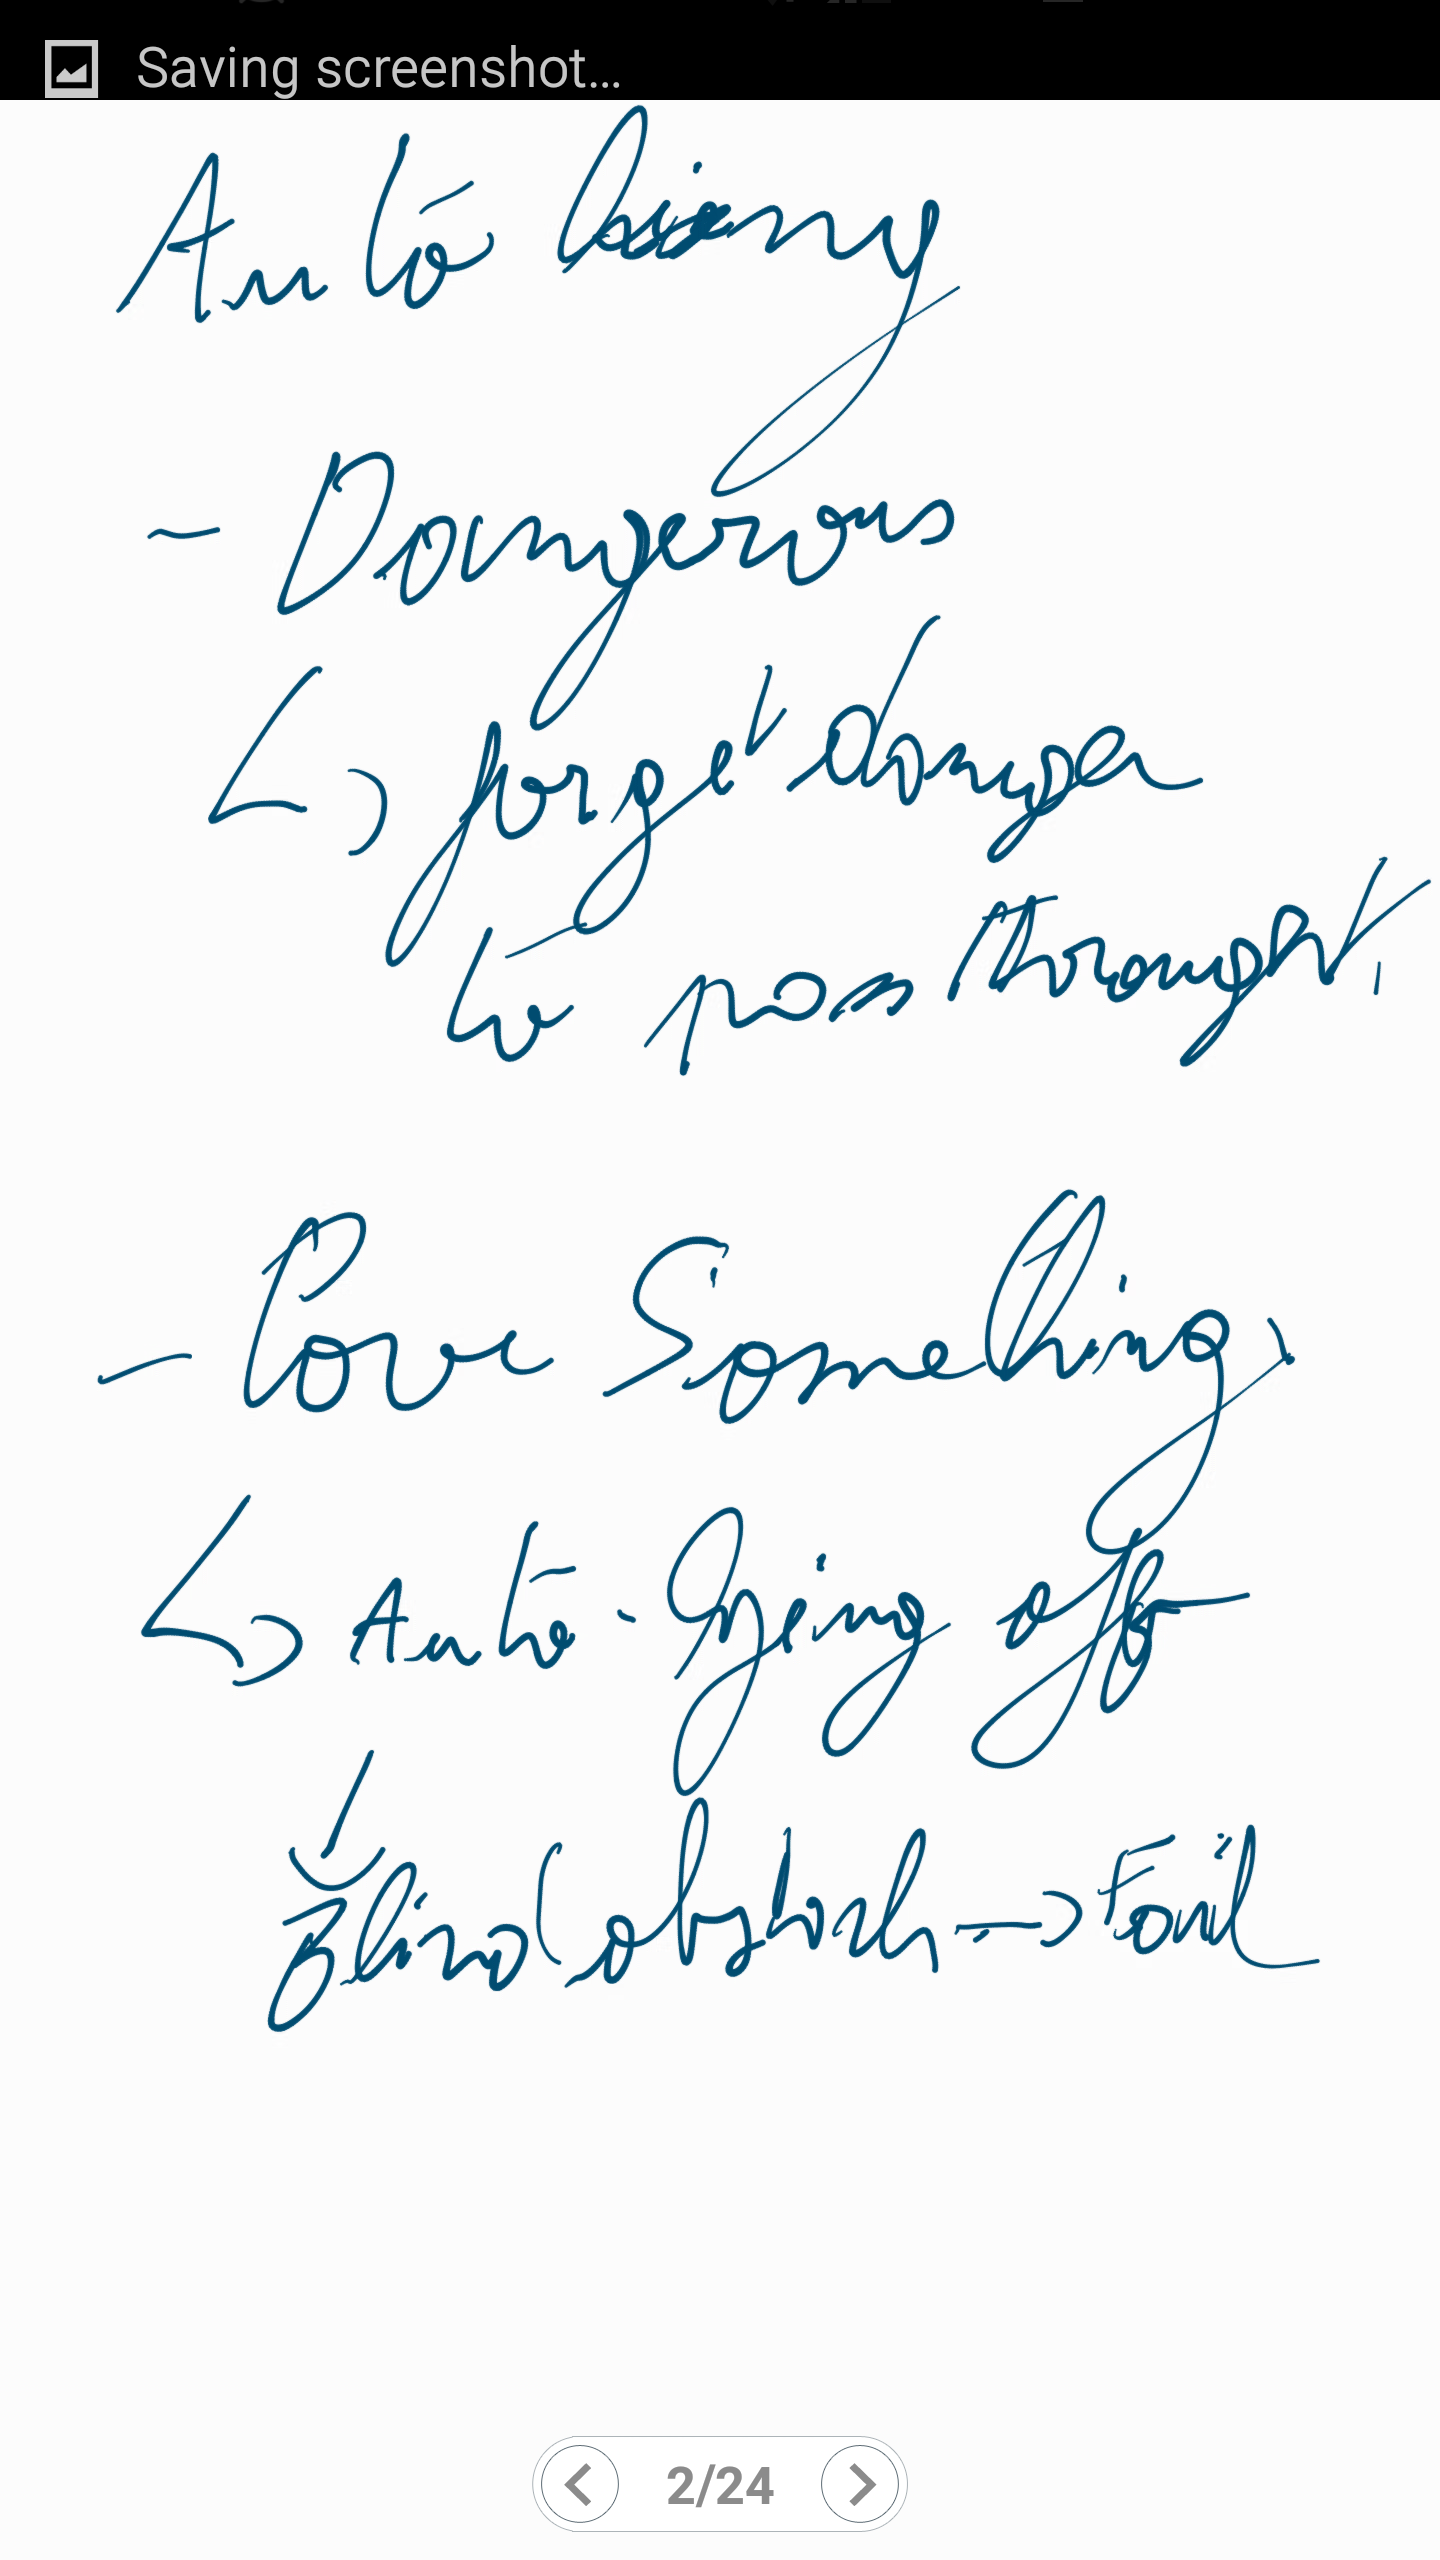 Saving screenshot...
Auto lying
- Dangerous
↳ forget danger
to pass throught.
- Love Something,
↳ Auto-lying off
↓
Blind obstacle → Fail
2/24